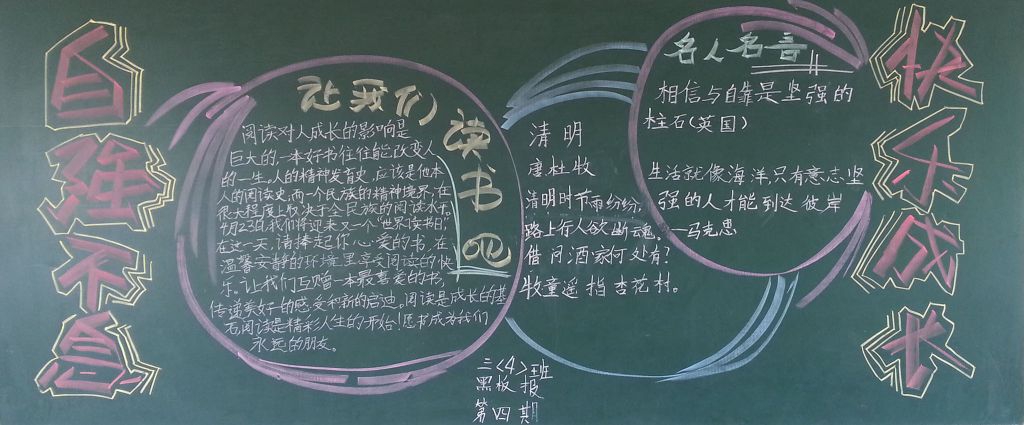 自强不息
让我们读书吧
阅读对人成长的影响是
巨大的,一本好书往往能改变人
的一生,人的精神发育史,应该是他本
人的阅读史,而一个民族的精神境界,在
很大程度上取决于全民族的阅读水平,
4月23日,我们将迎来又一个“世界读书日”,
在这一天,请捧起你心爱的书,在
温馨安静的环境里享受阅读的快
乐,让我们互赠一本最喜爱的书,
传递美好的感受和新的启迪。阅读是成长的基
石,阅读是精彩人生的开始!愿书成为我们
永远的朋友。
清明
唐杜牧
清明时节雨纷纷,
路上行人欲断魂。
借问酒家何处有?
牧童遥指杏花村。
名人名言
相信与自靠是坚强的
柱石(英国)
生活就像海洋,只有意志坚
强的人才能到达彼岸
—马克思
快乐成长
三<4>班
黑板报
第四期